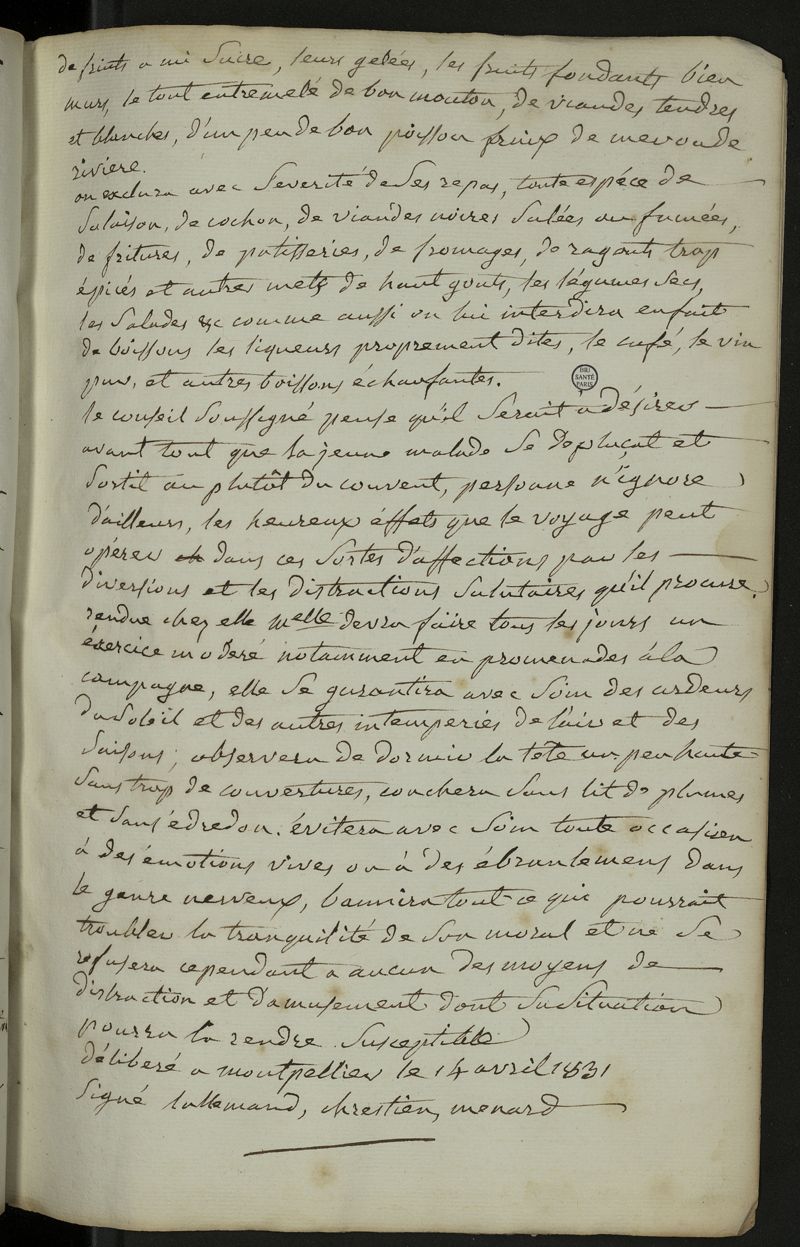 de fruits a mi sucre, leurs gelées, les fruits fondants bien
murs, le tout entremelé de bon mouton, de viandes tendres
et blanches, d'un peu de bon poisson fraix de mer ou de
riviere.
on exclura avec Severité de Ses repas, toute espéce de
Salaison, de cochon, de viandes noires Salées ou fumées,
de fritures, de patisseries, de fromages, de ragouts trop
épicés et autres mets de haut gouts, les légumes Secs,
les Salades &c comme aussi on lui interdira en fait
de boissons les liqueurs proprement dites, le café, le vin
pur, et autres boissons échaufantes.
BIU
SANTÉ
PARIS
le conseil Soussigné pense qu'il Serait a désirer
avant tout que la jeune malade Se deplaçat et
Sortit au plutôt du couvent, personne n'ignore
d'ailleurs, les heureux éffets que le voyage peut
opérer dans ces Sortes d'affections par les
diversions et les distractions Salutaires qu'il procure.
rendue chez elle melle devra faire tous les jours un
éxercice moderé notamment en promenades à la
campagne, elle Se garantira avec Soin des ardeurs
du Soleil et des autres intemperies de l'air et des
Saisons; observera de dormir la tête un peu haute
Sans trop de couvertures, couchera Sans lit de plumes
et Sans édredon. évitera avec Soin toute occasion
à des émotions vives ou à des ébranlemens dans
le genre nerveux, bannira tout ce qui pourrait
troubler la tranquilité de Son moral et ne Se
refusera cependant a aucun des moyens de
distraction et d'amusement dont Sa Situation
pourra la rendre Susceptible
déliberé a montpellier le 14 avril 1831
Signé lallemand, chrestien, menard